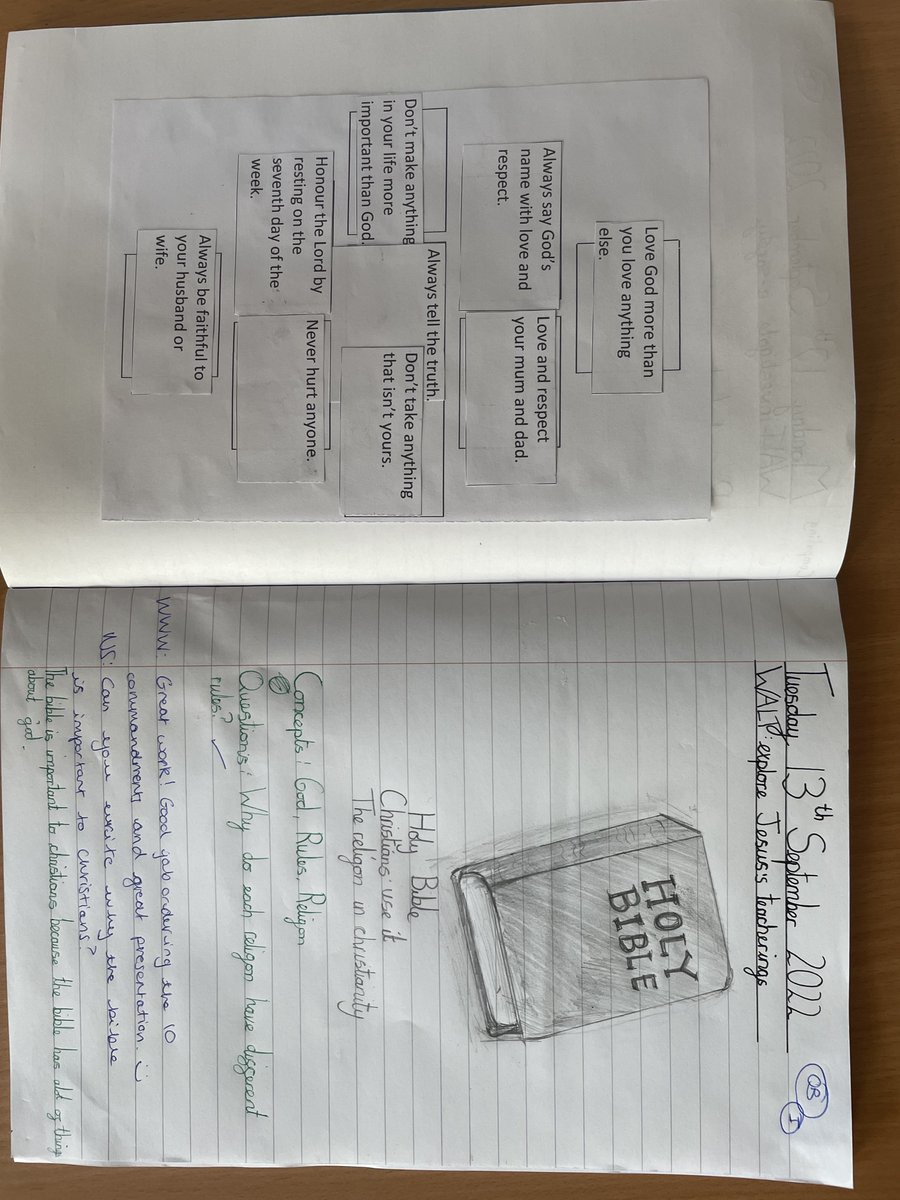 Love God more than
you love anything
else.
Always say God's
name with love and
respect.
Love and respect
your mum and dad.
Don't make anything
in your life more
important than God.
Always tell the truth.
Don't take anything
that isn't yours.
Honour the Lord by
resting on the
seventh day of the
week.
Never hurt anyone.
Always be faithful to
your husband or
wife.
Tuesday 13th September 2022
WALT: explore Jesus's teacherings
OR I
HOLY
BIBLE
Holy Bible
Christians use it
The religon in christianity
Concepts: God, Rules, Religon
Questions: Why do each religon have different
rules?
WWW: Great work! Good job ordering the 10
commandments and great presentation.
NS: Can you write why the bible
is important to christians?
The bible is important to christians because the bible has alot of thing
about god.